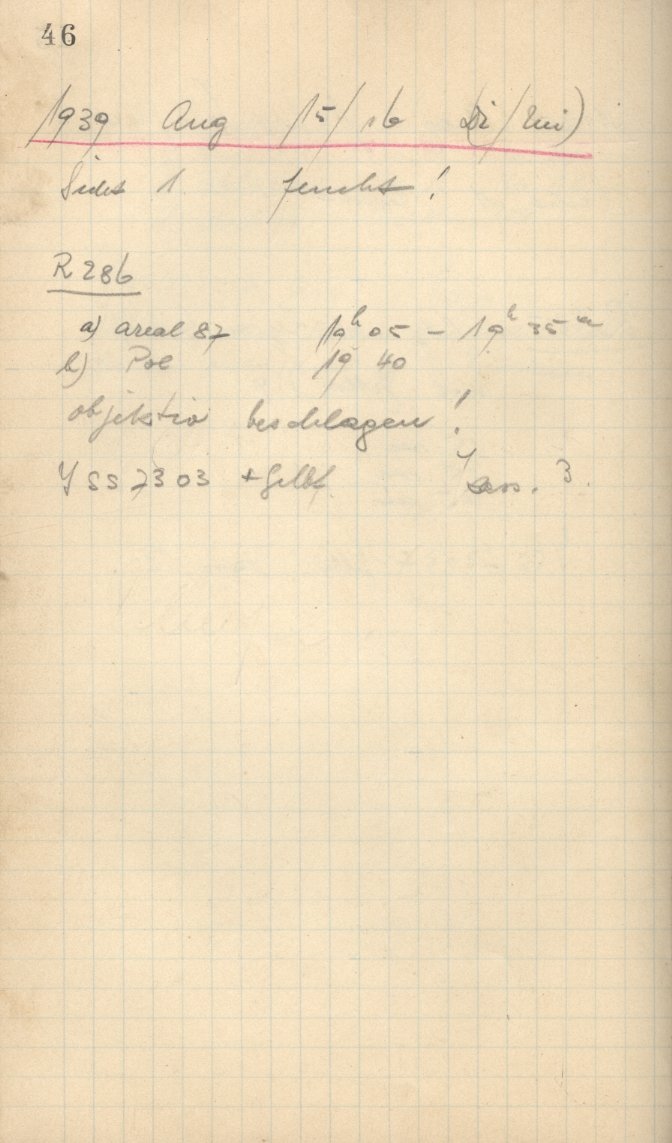 46
1939 Aug 15/16 (Di/Mi)
Sicht 1 feucht!
R 286
a) Areal 87 19h 05 - 19h 35m
b) Pol 19 40
Objektiv beschlagen!
SS 7303 + Gelbf. 3.